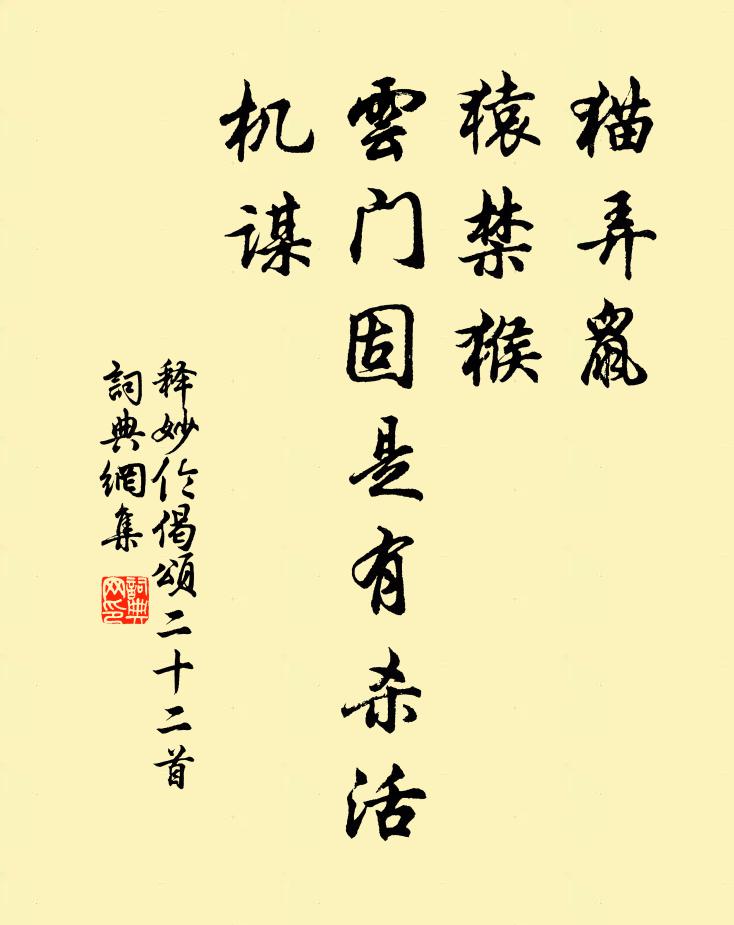 猫弄鼠
猿禁猴
雲门固是有杀活
机谋
释妙伦偈頌二十二首
詞典網集
詞典网印